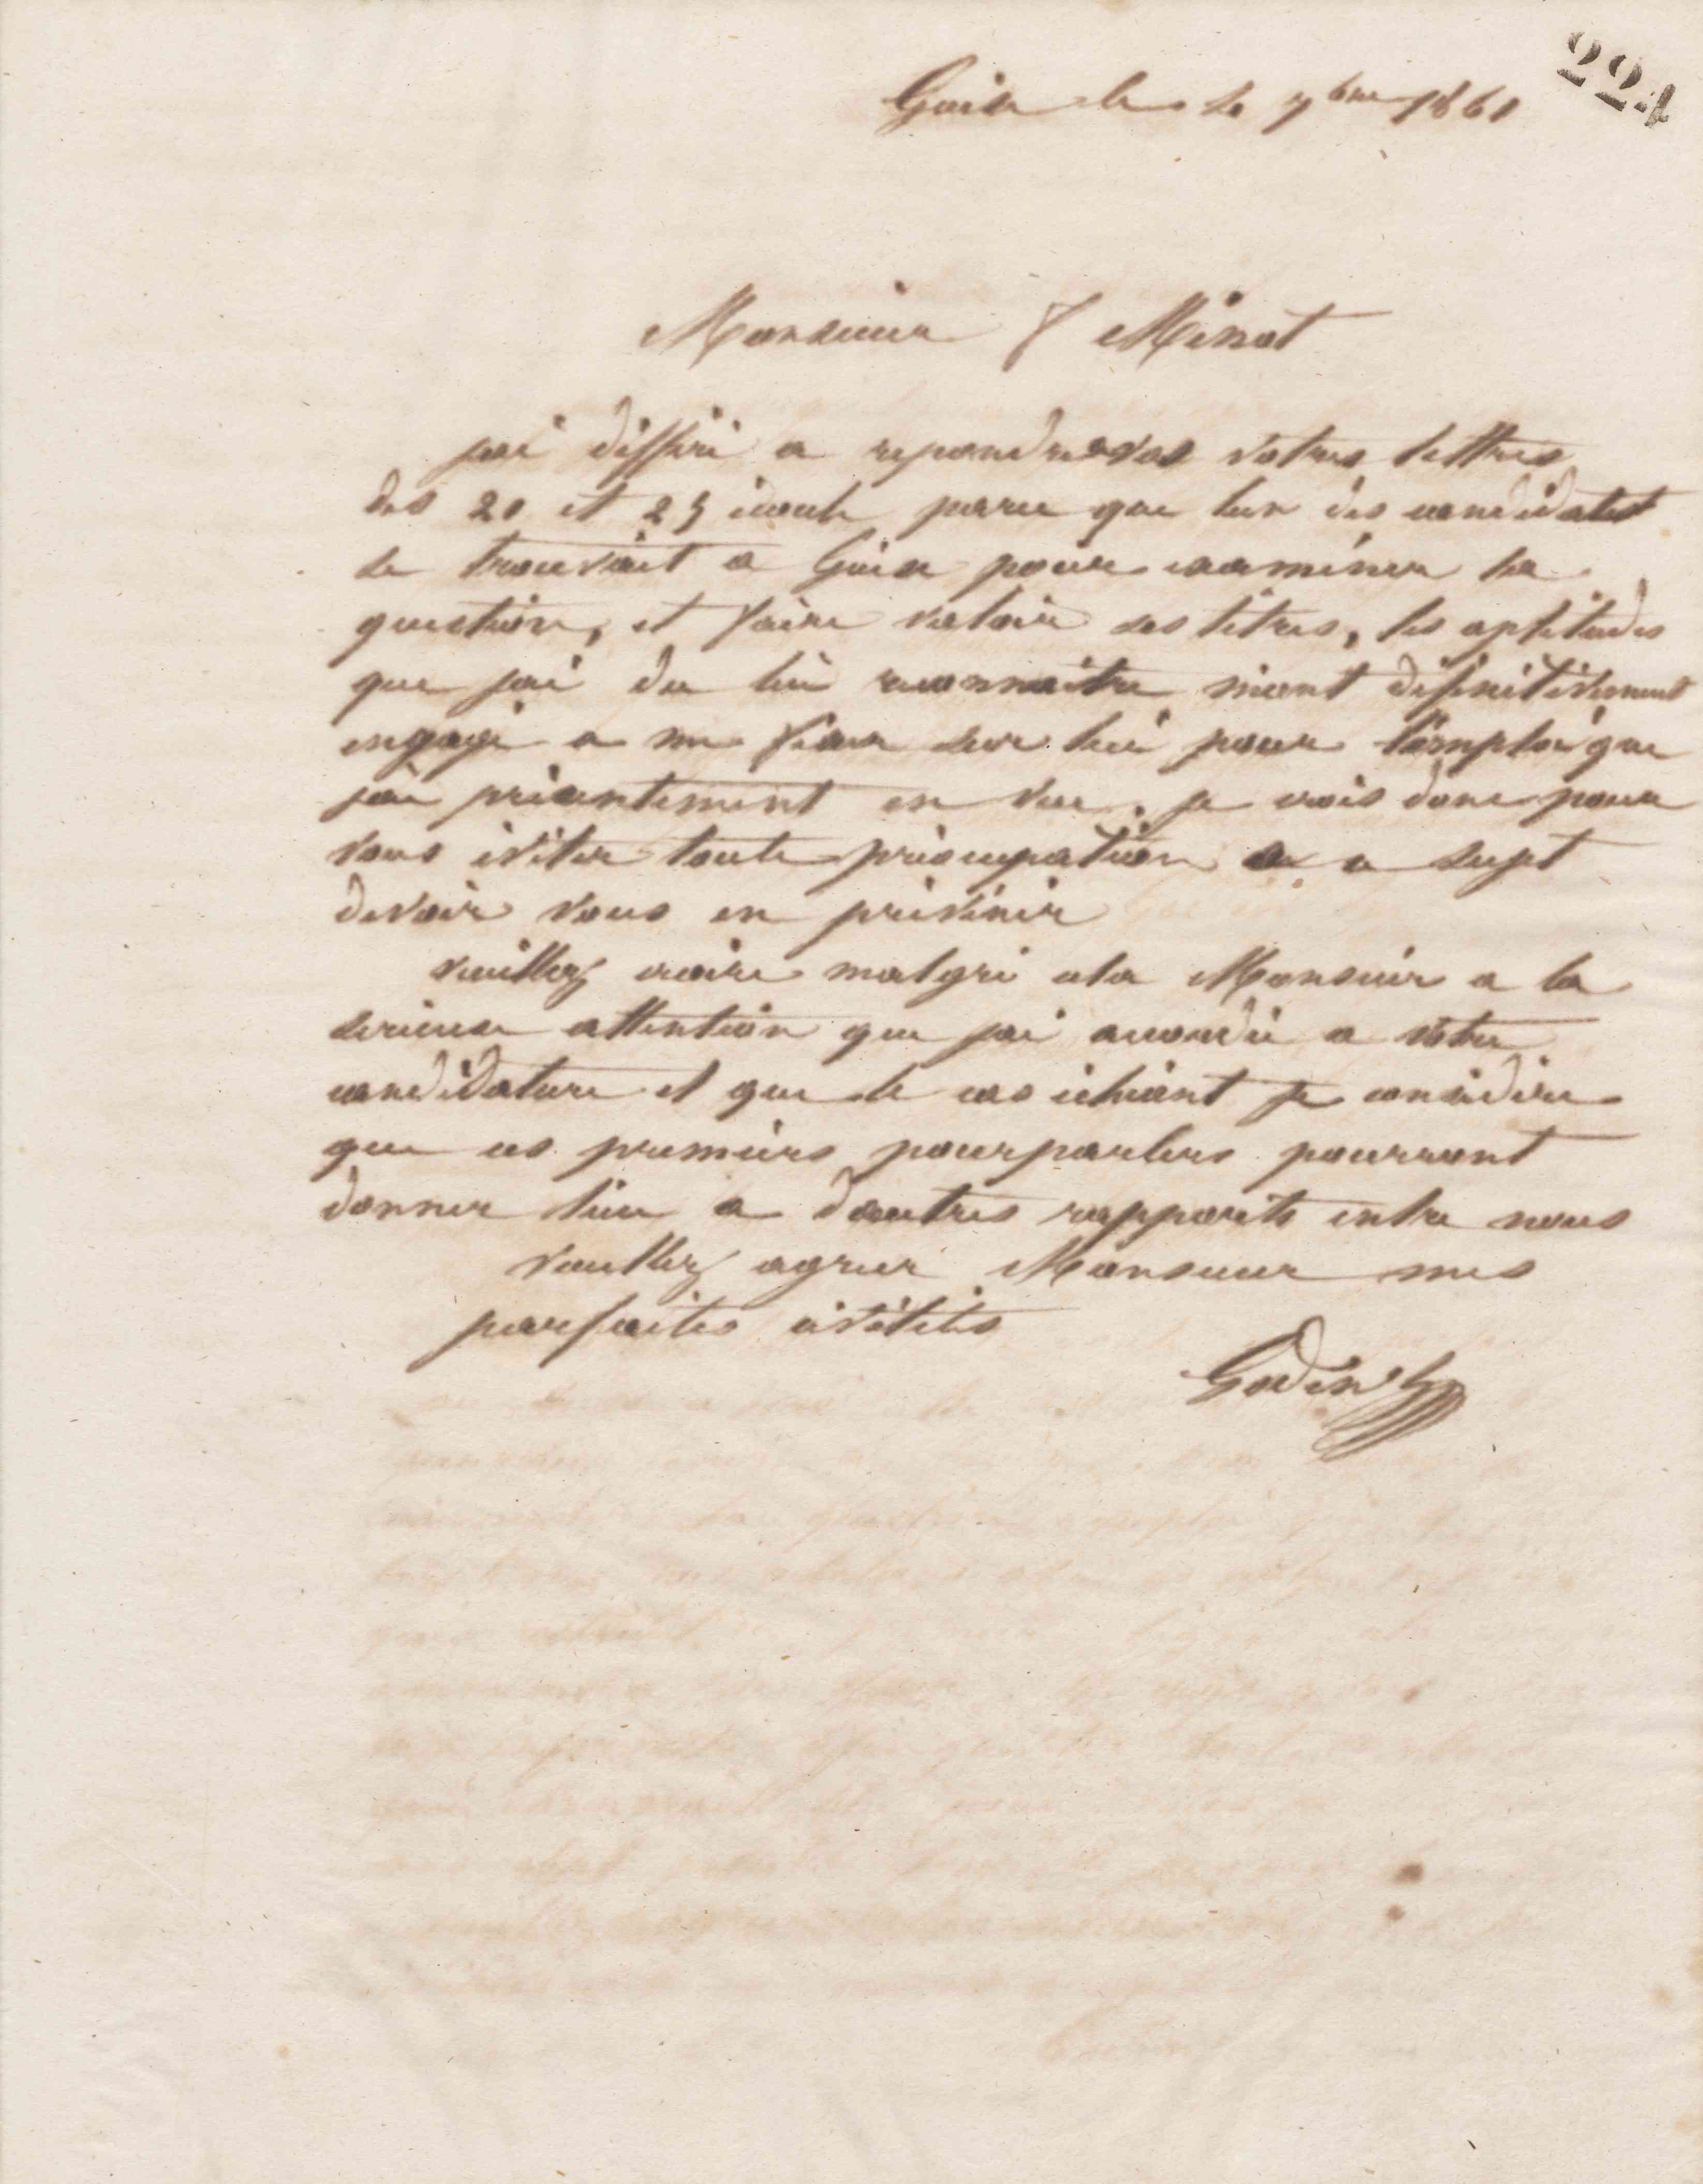 224
Guise le 7bre 1861
Monsieur Minot
jai differé a repondre vos votres lettres
des 20 et 25 ecoule parce que lun des candidatst
se trouvait a Guise pour examiner la
question, et faire valoir ses titres, les aptitudes
que jai du lui reconnaitre mont definitivement
engagé a me fixer sur lui pour lemploi que
jai présentement en vue. je crois donc pour
vous éviter toute préocupation a sujet
devoir vous en prévenir
veuillez croire malgré cela Monsieur a la
serieuse attention que jai accordée a votre
candidature et que le cas échéant je considère
que ces premiers pourparlers pourront
donner lieu a dautres rapports entre nous
veuillez agreer Monsieur mes
parfaites civilités
Godin